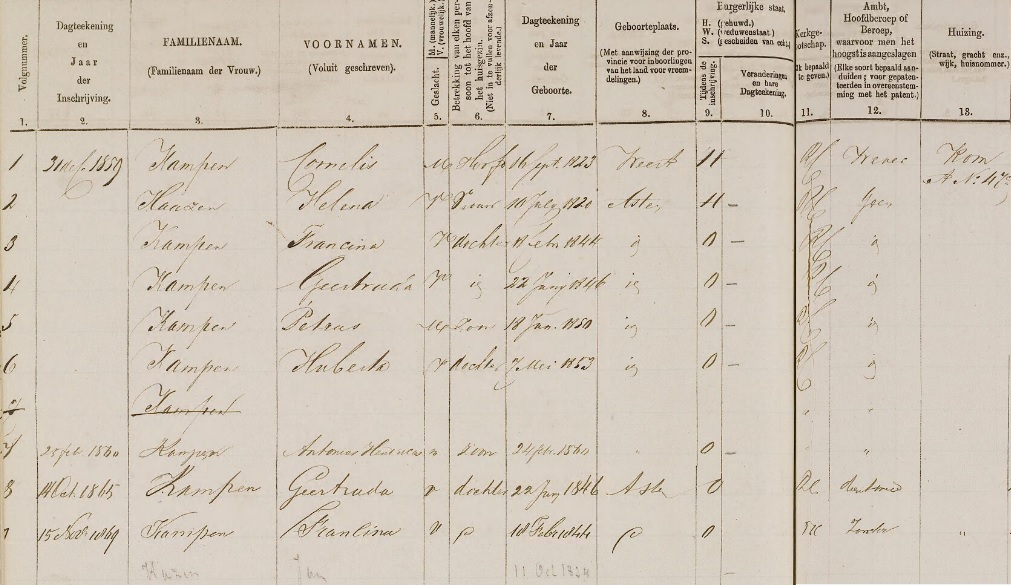 Volgnummer.
Dagteekening en Jaar der Inschrijving.
FAMILIENAAM. (Familienaam der Vrouw.)
VOORNAMEN. (Voluit geschreven.)
Geslacht. M. (mannelijk.) V. (vrouwelijk.)
Betrekking van elken persoon tot het hoofd van het huisgezin. (Niet in te vullen voor afzonderlijk levende.)
Dagteekening en Jaar der Geboorte.
Geboorteplaats. (Met aanwijzing der provincie voor inboorlingen van het land voor vreemdelingen.)
Burgerlijke staat,
H. (gehuwd.)
W. (weduwenstaat.)
S. (gescheiden van echt.)
Tijdens de inschrijving.
Veranderingen en hare Dagteekening.
Kerkgenootschap.
Ambt, Hoofdberoep of Beroep, waarvoor men het hoogst is aangeslagen (Elke soort bepaald aanduiden; voor gepatenteerden in overeenstemming met het patent.)
Huizing. (Straat, gracht enz., wijk, huisnommer.)
1. 2. 3. 4. 5. 6. 7. 8. 9. 10. 11. 12. 13.
1 1859 Kampen Cornelis M Hoofd 16 Sept. 1823 H RC Wever Kom
A No. 47
2 Haazen Helena V Vrouw 1820 Asten H – RC
3 Kampen Francina V dochter 18 Febr 1844 ig 0 – RC ig
4 Kampen Geertruda V ig 22 Junij 1846 ig 0 – RC ig
5 Kampen Petrus M Zoon 18 Jan. 1850 ig 0 – RC ig
6 Kampen Huberta V dochter 7 Mei 1853 ig 0 – RC ig
7 Kampen " "
7 1860 Kampen Antonius m Zoon 1860 0 – "
8 14 Oct. 1865 Kampen Geertruda v dochter 22 Junij 1846 Asten 0 RC
15 1869 Kampen Francina v 18 Febr 1844 0 RC Zonder "
Jan 11 Oct 1824